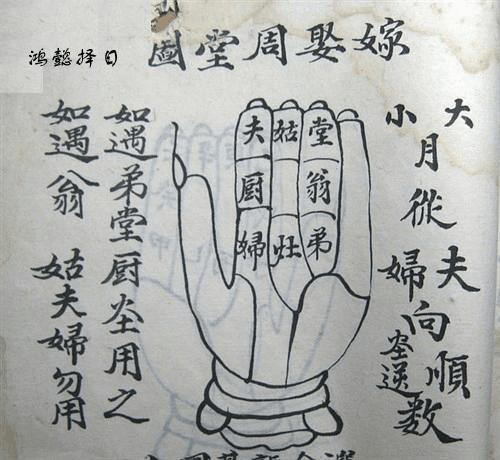 鸿懿择日
嫁娶周堂圖
大月從夫向順數
小 婦 逆
堂 翁 弟
姑 灶
夫 厨 婦
如遇弟堂厨灶用之
如遇翁姑夫婦勿用